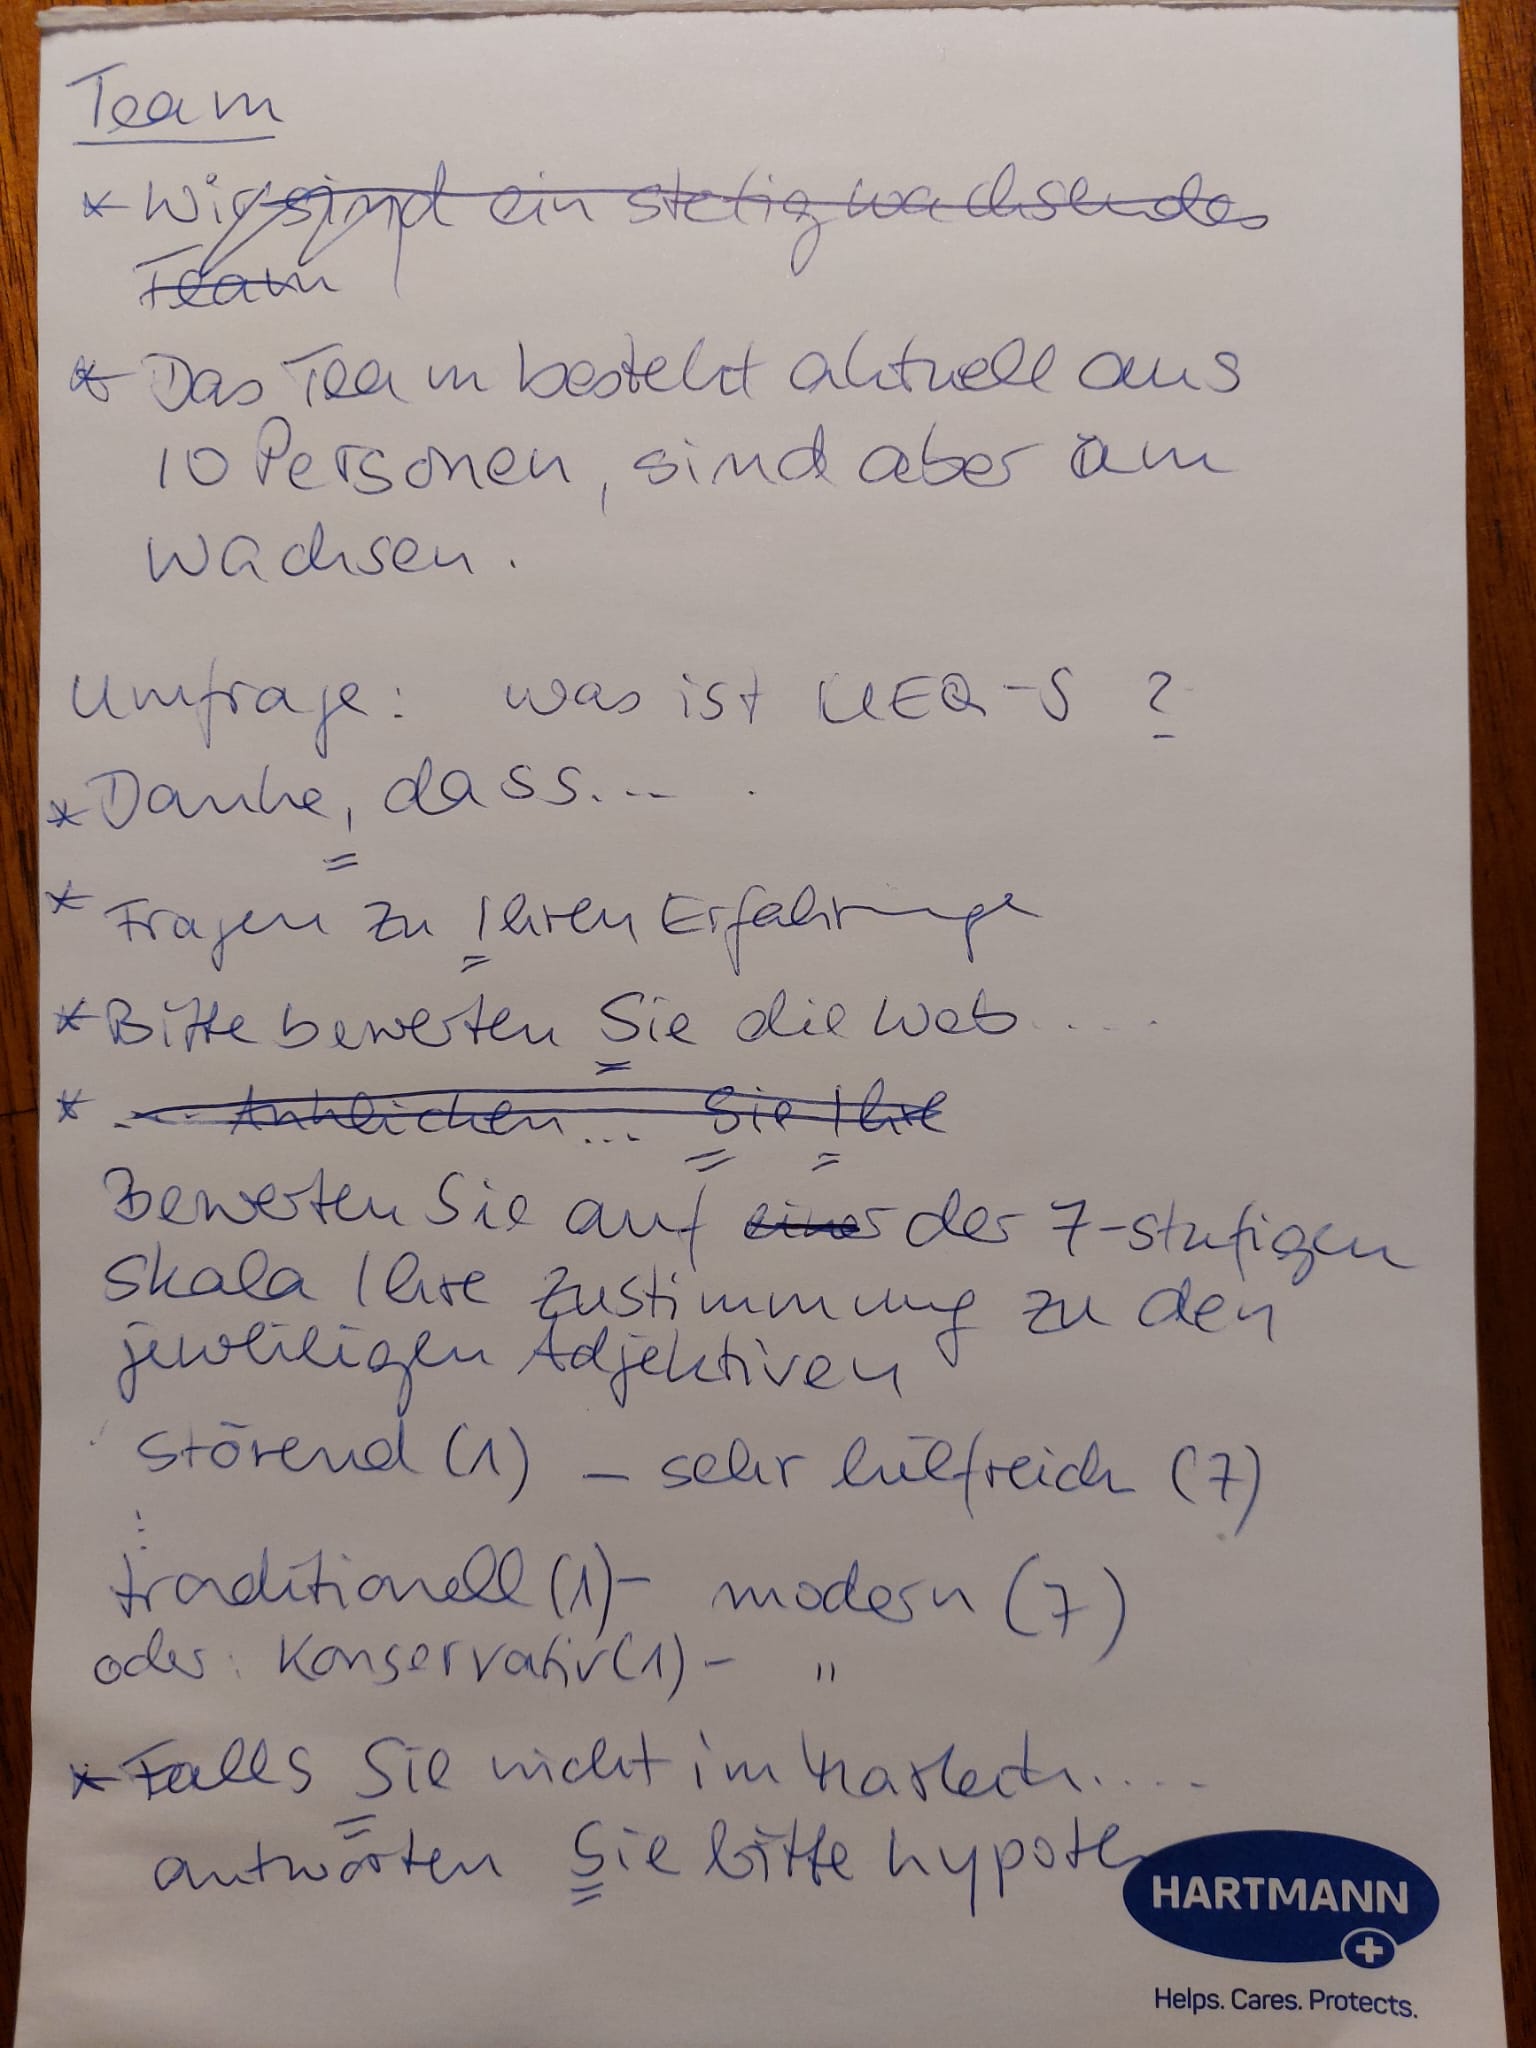 Team
* Wir sind ein stetig wachsendes
Team
* Das Team besteht aktuell aus
10 Personen, sind aber am
wachsen.
Umfrage: was ist UEQ-S ?
* Danke, dass...
* Fragen zu Ihren Erfahrunge
* Bitte bewerten Sie die Web ....
* ... Anklicken... Sie Ihre
Bewerten Sie auf einer der 7-stufigen
Skala Ihre Zustimmung zu den
jeweiligen Adjektiven
störend (1) - sehr hilfreich (7)
:
traditionell (1) - modern (7)
oder: Konservativ (1) - "
* Falls Sie nicht im ....
antworten Sie bitte hypoth
HARTMANN
Helps. Cares. Protects.